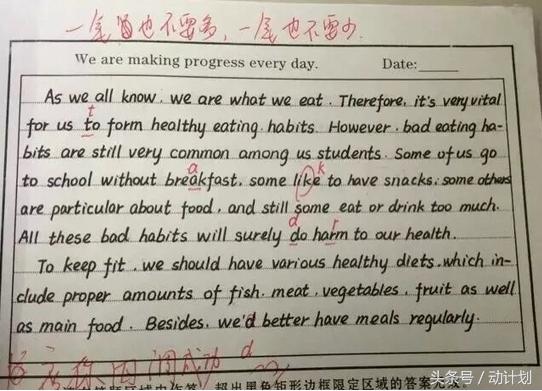 一尾也不要多,一尾也不要少
We are making progress every day. Date:
As we all know, we are what we eat. Therefore, it's very vital
t
for us to form healthy eating habits. However, bad eating ha-
bits are still very common among us students. Some of us go
a k
to school without breakfast, some like to have snacks, some others
are particular about food, and still some eat or drink too much.
d r
All these bad habits will surely do harm to our health.
To keep fit, we should have various healthy diets, which in-
clude proper amounts of fish, meat, vegetables, fruit as well
as main food. Besides, we'd better have meals regularly.
成功 d
超出黑色矩形边框限定区域的答案无效
头条号 / 动计划